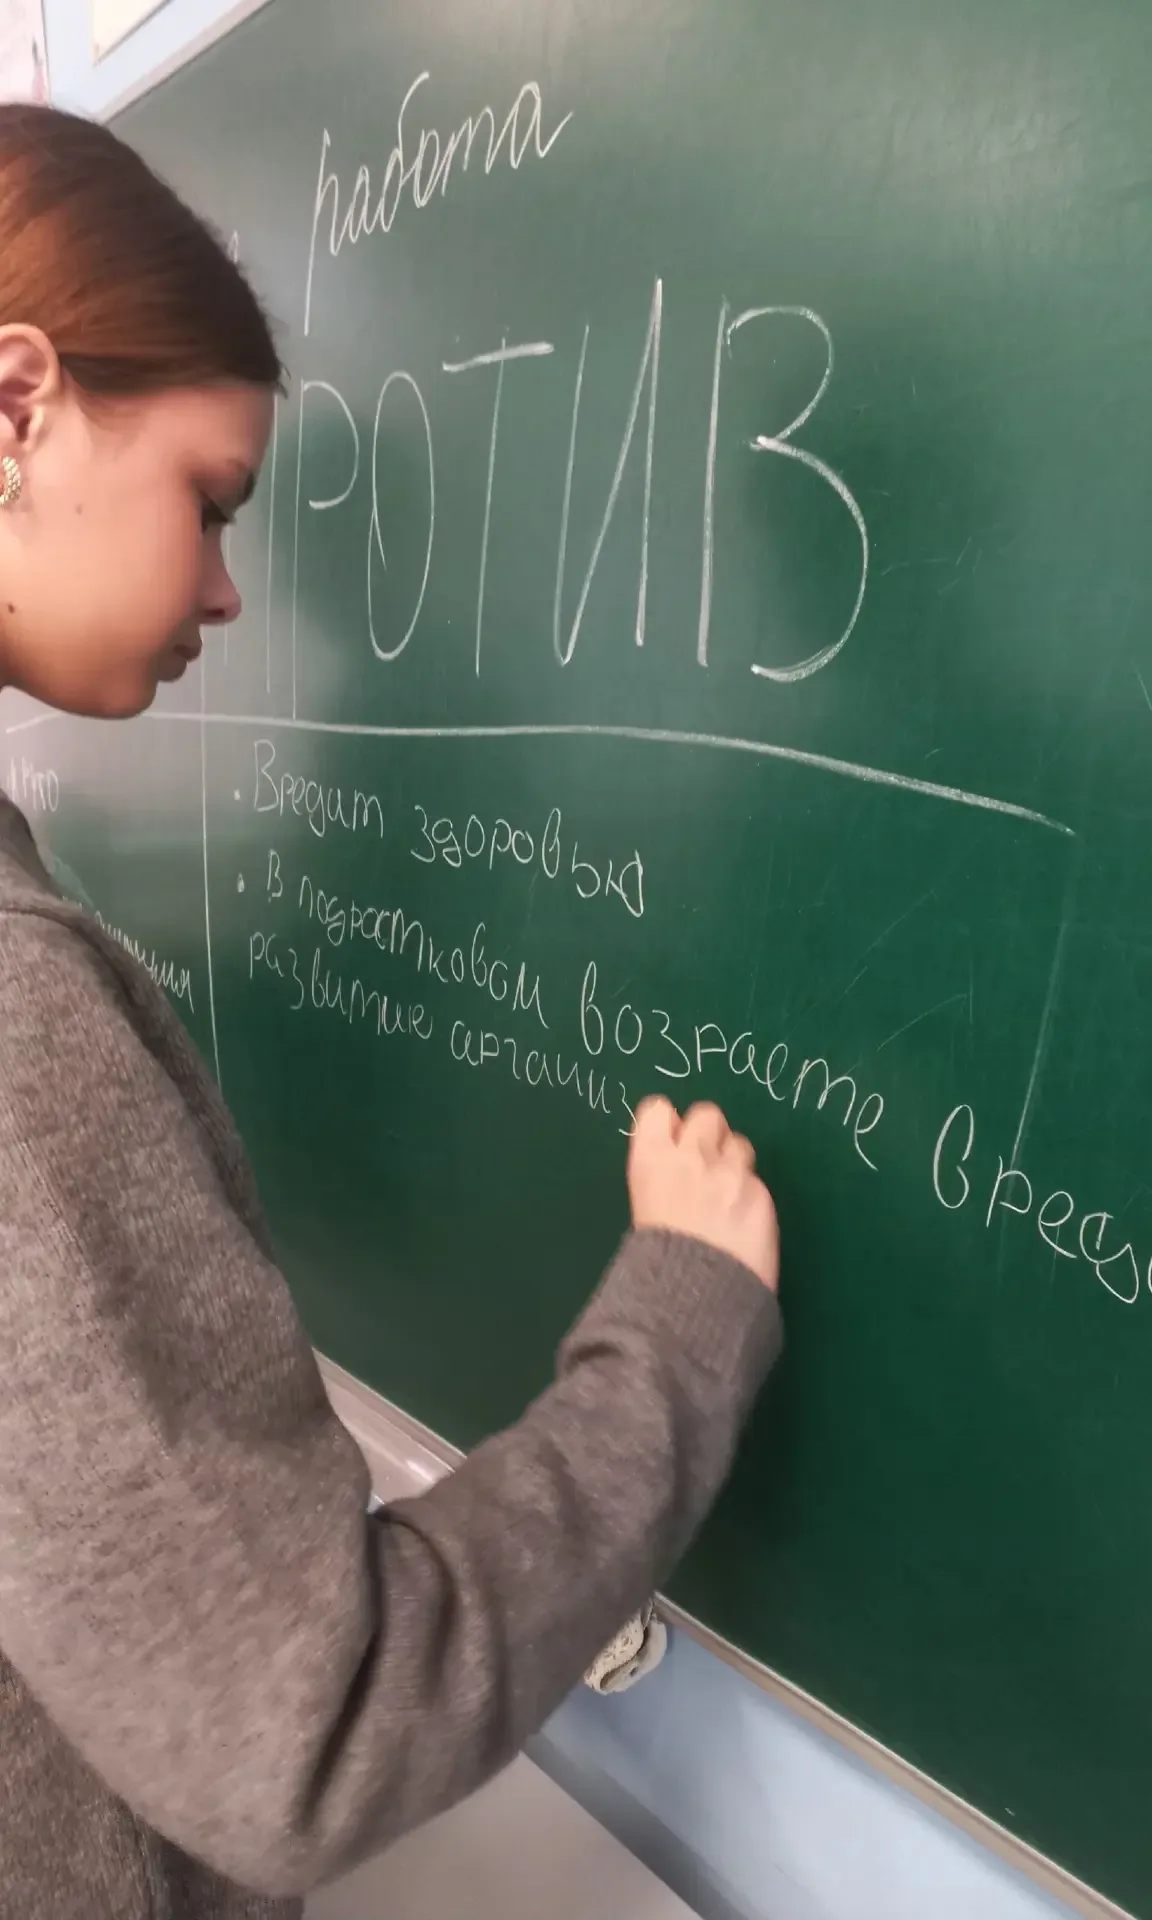 работа
ПРОТИВ
. Вредит здоровью
. В подростковом возрасте вреди
развитие организ